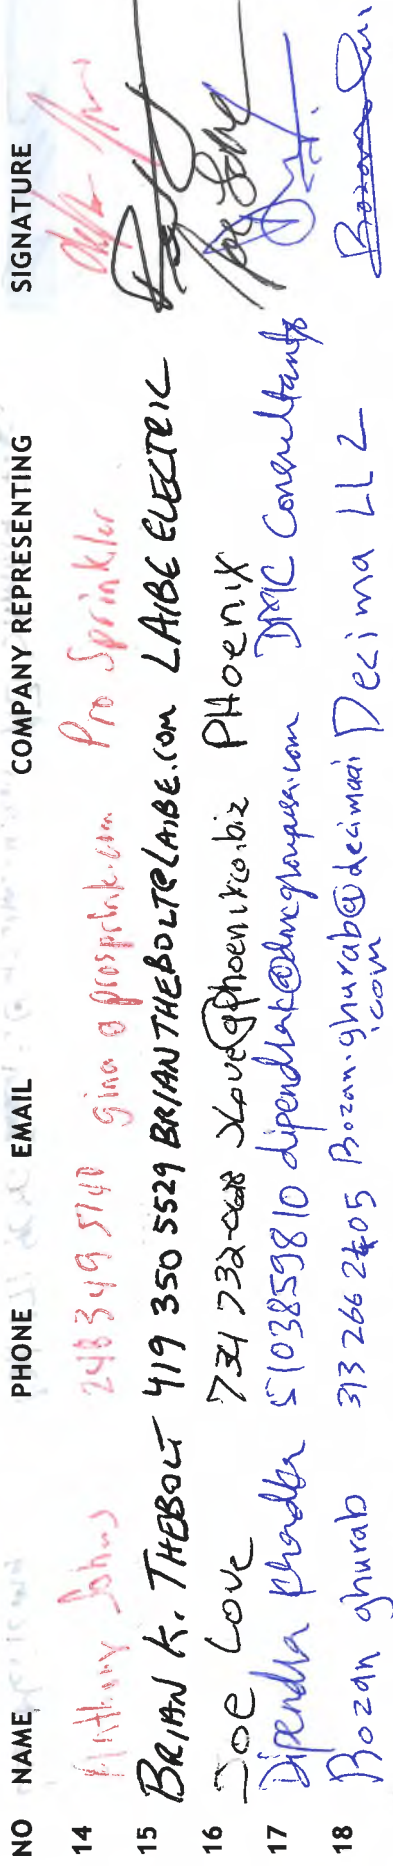 NO NAME PHONE EMAIL COMPANY REPRESENTING SIGNATURE
14 Anthony Johns 248 349 5740 gina@prosprink.com Pro Sprinkler
15 BRIAN K. THEBOLT 419 350 5529 BRIANTHEBOLT@LAIBE.COM LAIBE ELECTRIC
16 Joe Love 734 732- JLove@Phoenixco.biz PHoenix Joe Love
17 Dipendra 5103859810 DMC Consultants
18 Bozan ghurab 313 266 2405 Bozan.ghurab@decimaai Decima LLC
.com